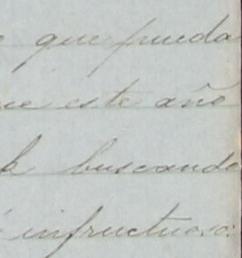 que pueda
este año
buscando
infructuoso: